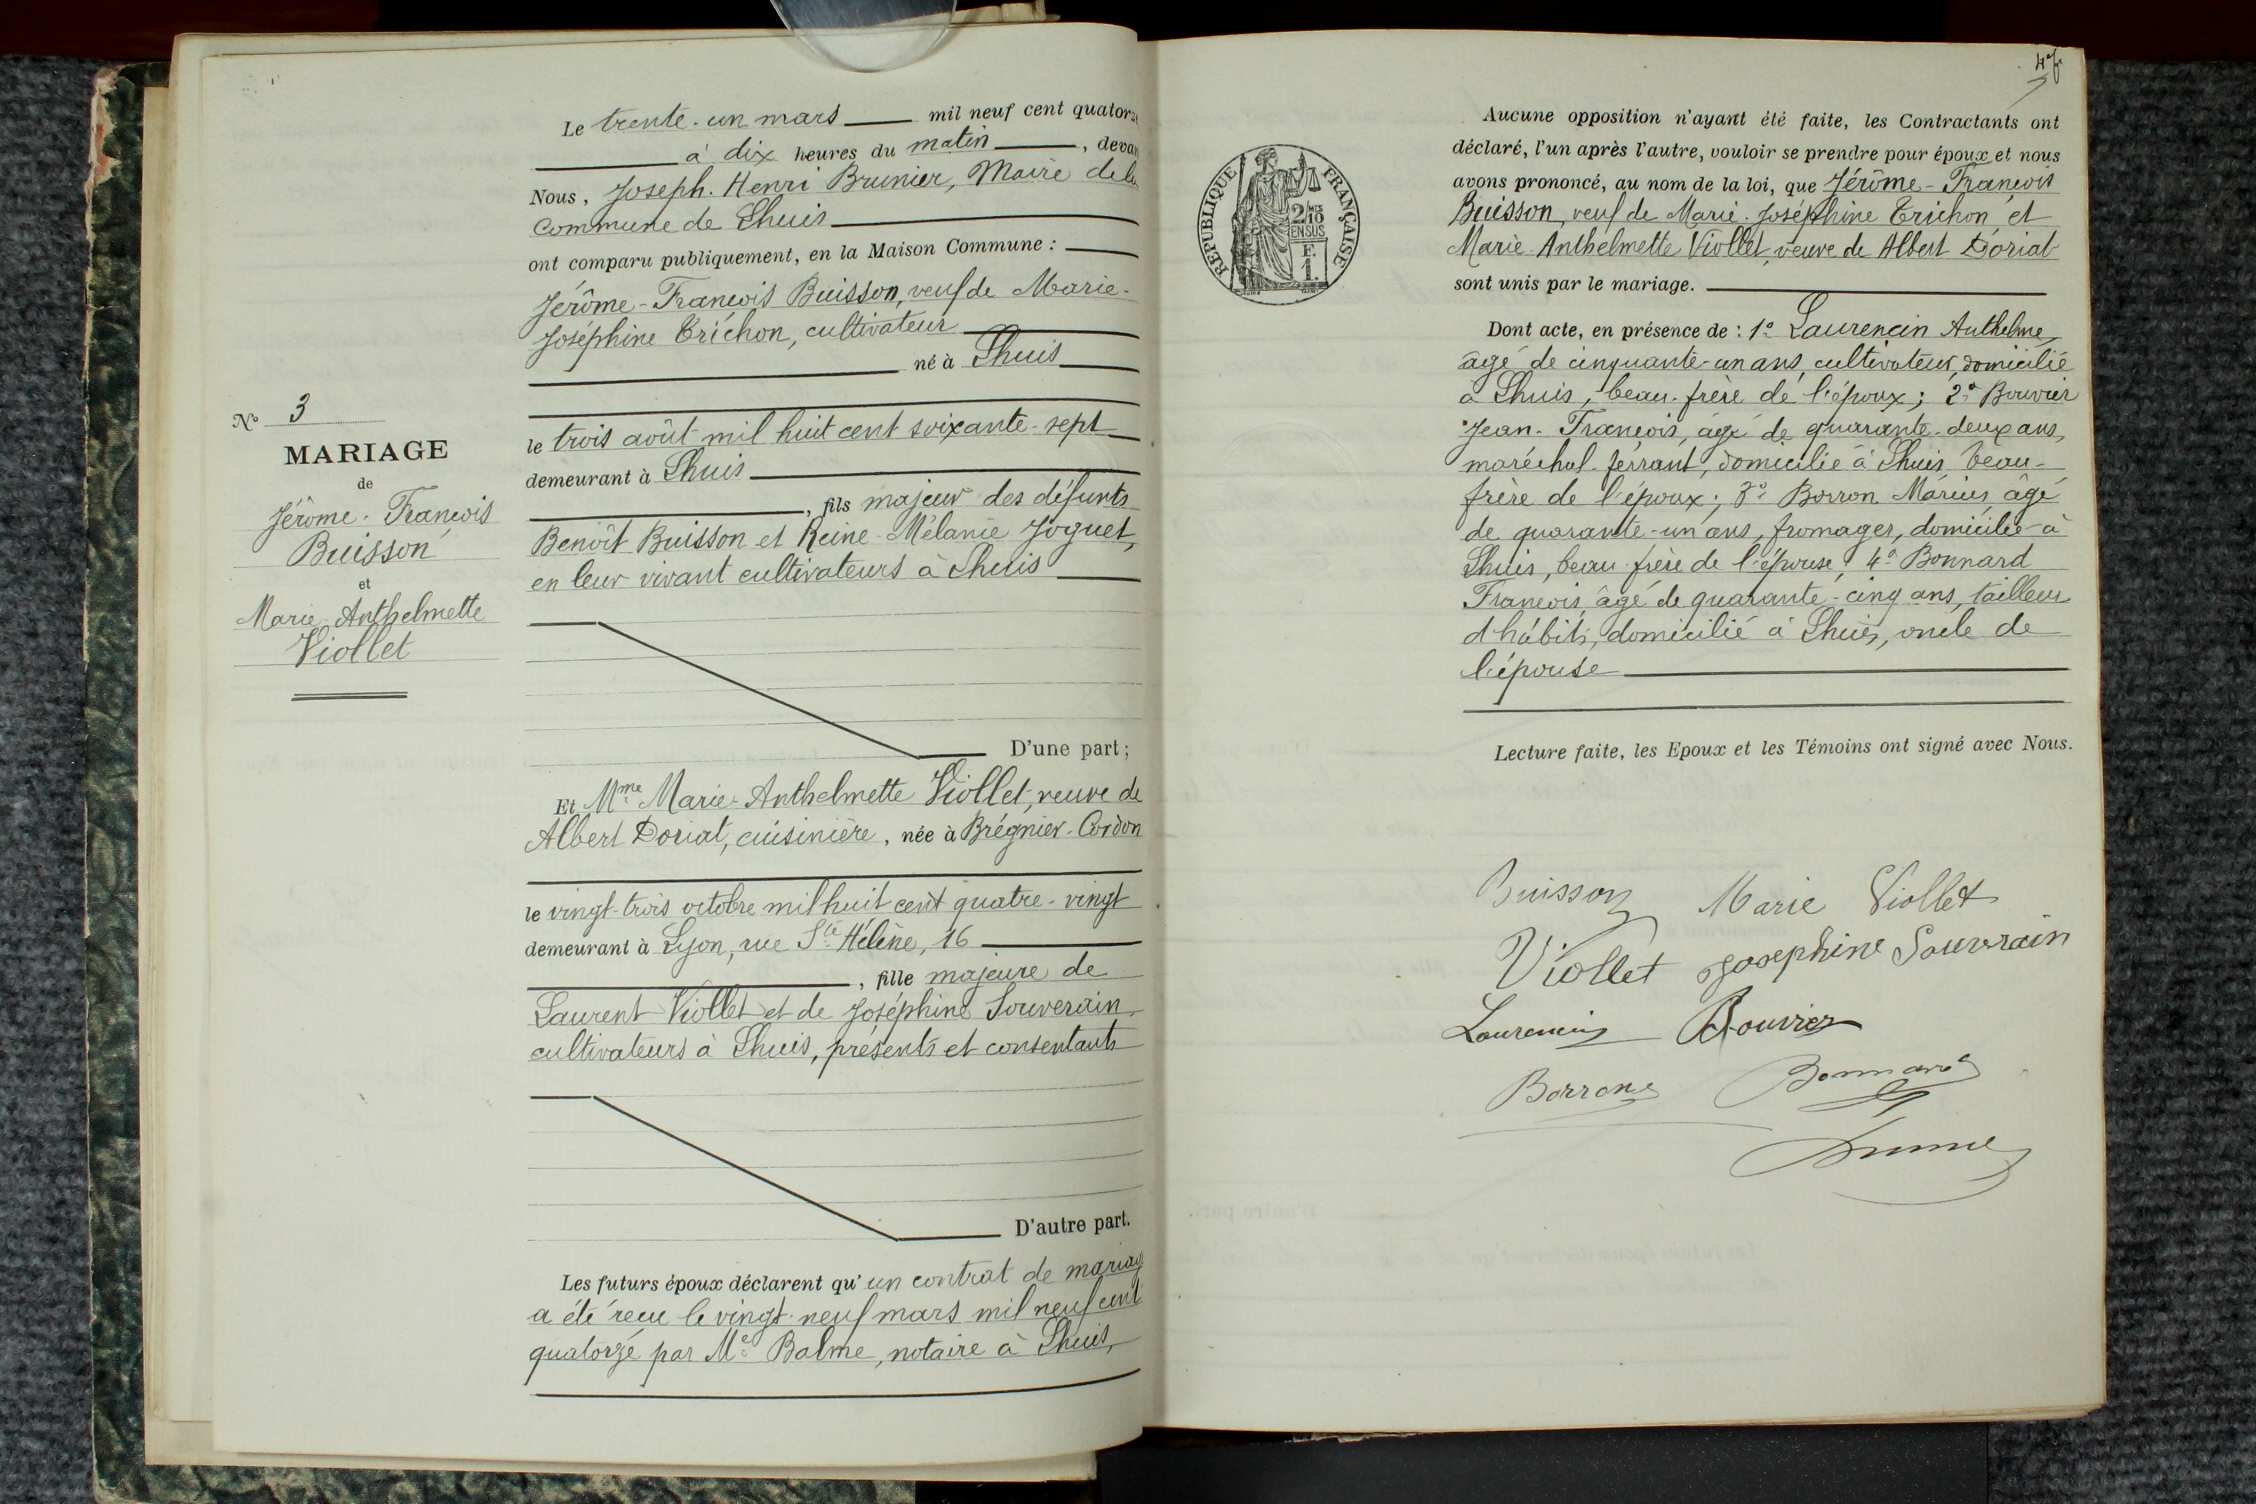 Le trente-un mars mil neuf cent quatorze
à dix heures du matin, devan
Nous, Joseph-Henri Brunier, Maire de la
commune de Lhuis
ont comparu publiquement, en la Maison Commune :
Jérôme-François Buisson, veuf de Marie-
Joséphine Trichon, cultivateur
né à Lhuis
le trois août mil huit cent soixante-sept
demeurant à Lhuis
, fils majeur des défunts
Benoît Buisson et Reine-Mélanie Joguet,
en leur vivant cultivateurs à Lhuis
D'une part ;
Et Mme Marie-Anthelmette Viollet, veuve de
Albert Doriat, cuisinière, née à Brégnier-Cordon
le vingt-trois octobre mil huit cent quatre-vingt
demeurant à Lyon, rue Ste Hélène, 16
, fille majeure de
Laurent Viollet et de Joséphine Souverain,
cultivateurs à Lhuis, présents et consentants
D'autre part.
Les futurs époux déclarent qu'un contrat de mariag
a été reçu le vingt-neuf mars mil neuf cent
quatorze par Me Balme, notaire à Lhuis,
N° 3
MARIAGE
de
Jérôme-François
Buisson
et
Marie-Anthelmette
Viollet
4e f
RÉPUBLIQUE FRANÇAISE
2/10
EN SUS
F.
1.
Aucune opposition n'ayant été faite, les Contractants ont
déclaré, l'un après l'autre, vouloir se prendre pour époux et nous
avons prononcé, au nom de la loi, que Jérôme-François
Buisson, veuf de Marie-Joséphine Trichon et
Marie-Anthelmette Viollet, veuve de Albert Doriat
sont unis par le mariage.
Dont acte, en présence de : 1° Laurencin Anthelme,
âgé de cinquante-un ans, cultivateur, domicilié
à Lhuis, beau-frère de l'époux ; 2° Bouvier
Jean-François, âgé de quarante-deux ans,
maréchal-ferrant, domicilié à Lhuis, beau-
frère de l'époux ; 3° Borron Marius, âgé
de quarante-un ans, fromager, domicilié à
Lhuis, beau-frère de l'épouse, 4° Bonnard
François, âgé de quarante-cinq ans, tailleur
d'habits, domicilié à Lhuis, oncle de
l'épouse
Lecture faite, les Epoux et les Témoins ont signé avec Nous.
Buisson Marie Viollet
Viollet Josephine Souverain
Laurencin Bouvier
Borron Bonnard